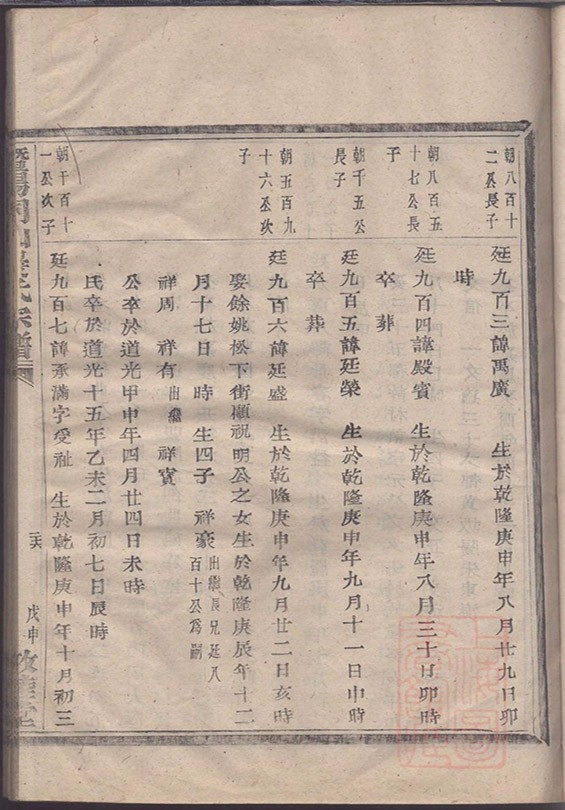 朝八百十
二公長子
廷九百三諱禹廣 生於乾隆庚申年八月廿九日卯
時
朝八百五
十七公長
子
廷九百四諱殿賓 生於乾隆庚申年八月三十日卯時
卒 葬
朝千五公
長子
廷九百五諱廷榮 生於乾隆庚申年九月十一日申時
卒 葬
朝五百九
十六公次
子
廷九百六諱廷盛 生於乾隆庚申年九月廿二日亥時
娶餘姚松下街顧祝明公之女生於乾隆庚辰年十二
月十七日 時生四子 祥豪 出繼長兄廷八
百十公為嗣
祥周 祥有 出繼 祥寶
公卒於道光甲申年四月廿四日未時
氏卒於道光十五年乙未二月初七日辰時
朝千百十
一公次子
廷九百七諱承滿字受祉 生於乾隆庚申年十月初三
暨陽 宗譜
戊申